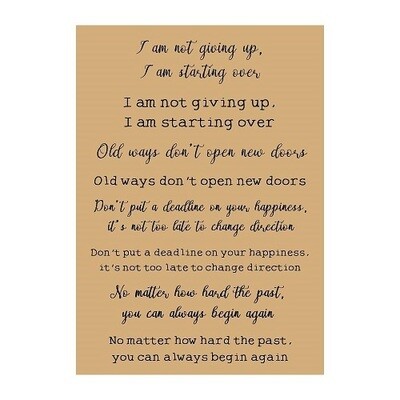 I am not giving up,
I am starting over
I am not giving up.
I am starting over
Old ways don't open new doors
Old ways don't open new doors
Don't put a deadline on your happiness,
it's not too late to change direction
Don't put a deadline on your happiness.
it's not too late to change direction
No matter how hard the past,
you can always begin again
No matter how hard the past.
you can always begin again